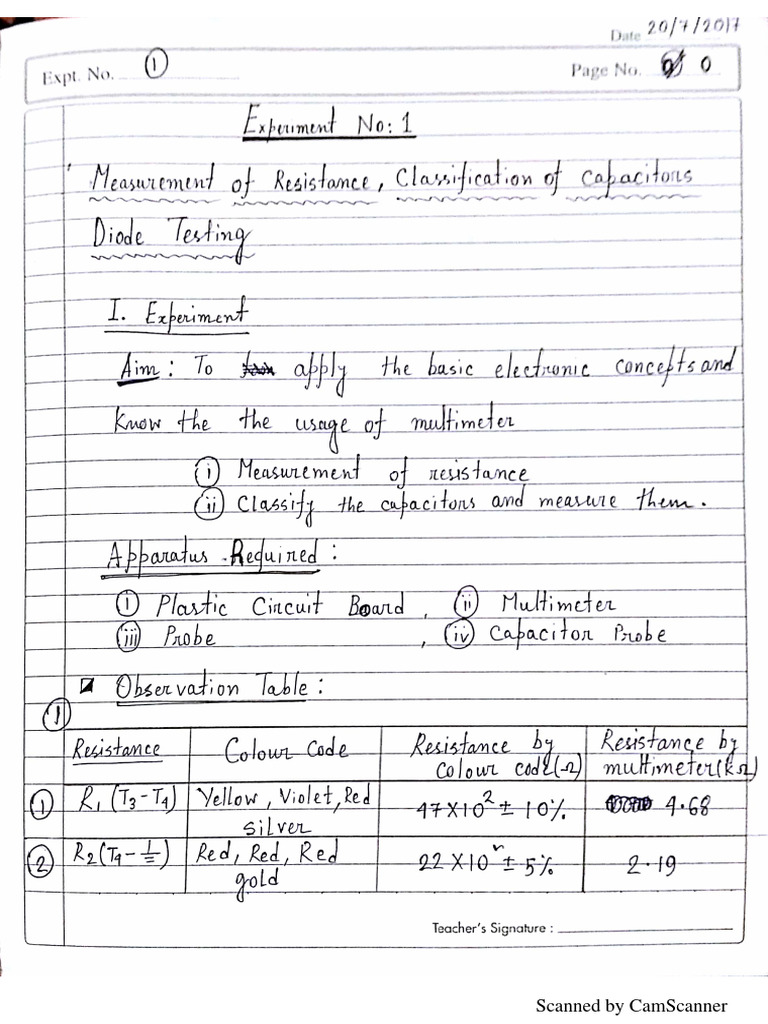 Date 20/7/2017
Expt. No. 1
Page No. 0
Experiment No: 1
Measurement of Resistance, Classification of Capacitors
Diode Testing
I. Experiment
Aim: To apply the basic electronic concepts and
know the the usage of multimeter
(i) Measurement of resistance
(ii) Classify the capacitors and measure them.
Apparatus Required:
(i) Plastic Circuit Board, (ii) Multimeter
(iii) Probe, (iv) Capacitor Probe
Observation Table:
(1)
Resistance Colour Code Resistance by Resistance by
colour code(Ω) multimeter(kΩ)
(1) R1 (T3-T4) Yellow, Violet, Red 47X10² ± 10% 4.68
silver
(2) R2 (T9- Red, Red, Red 22 X10 ± 5% 2.19
gold
Teacher's Signature :
Scanned by CamScanner